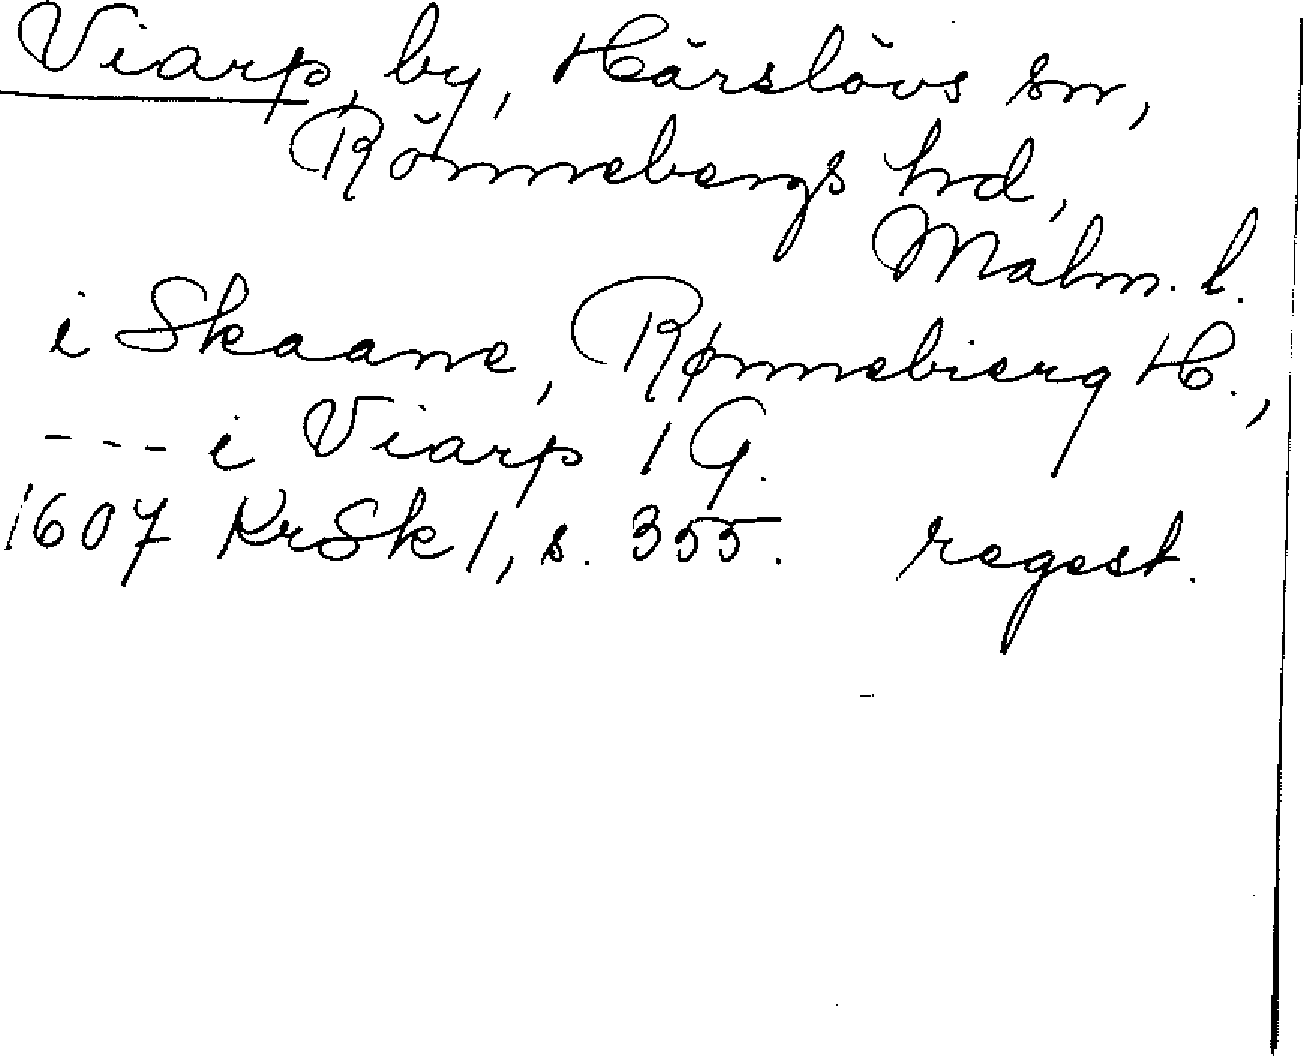 Viarp, by, Härslövs sn,
Rönnebergs hd,
Malm. l.
i Skaane, Rønnebierg H.,
--- i Viarp 1 G.
1607 KrSk 1, s. 355. regest.